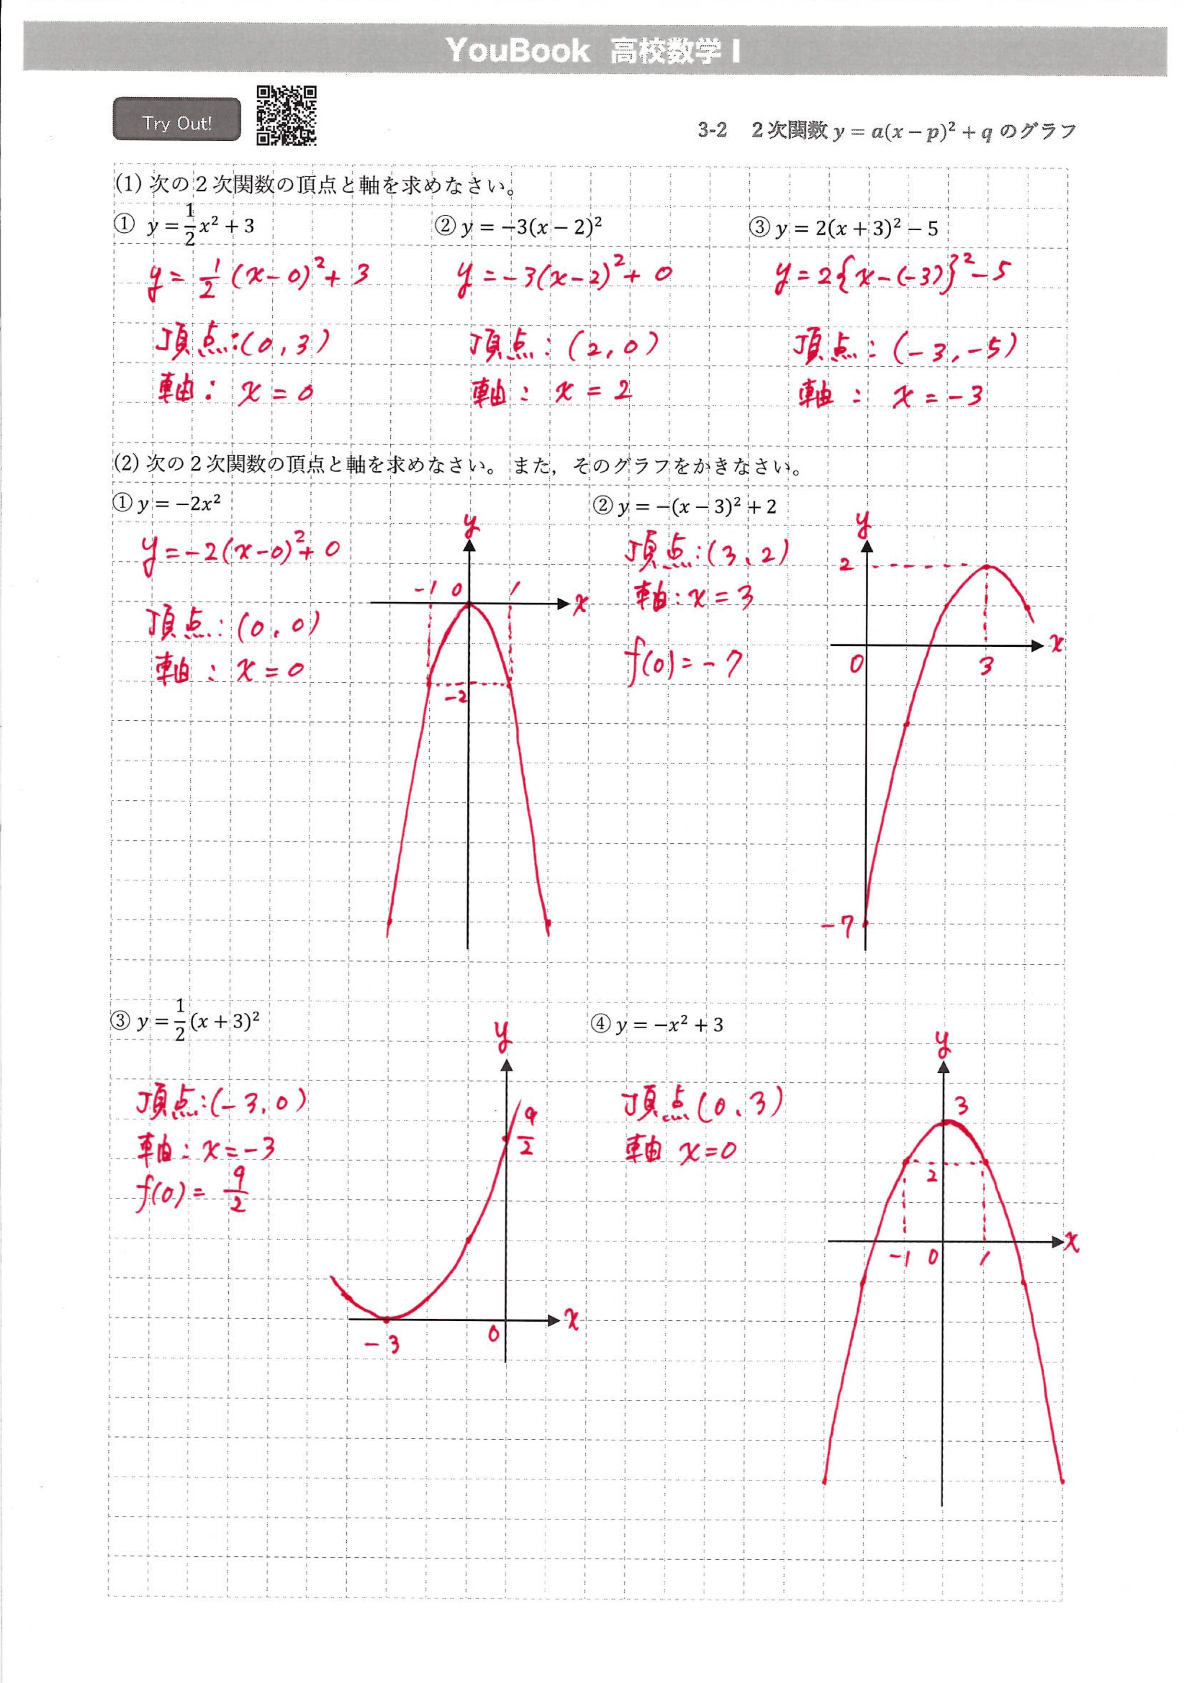 YouBook 高校数学 I
Try Out!
3-2 2次関数 y = a(x − p)² + q のグラフ
(1) 次の2次関数の頂点と軸を求めなさい。
① y = 1/2 x² + 3 ② y = −3(x − 2)² ③ y = 2(x + 3)² − 5
y = 1/2 (x−0)² + 3 y = −3(x−2)² + 0 y = 2{x−(−3)}² − 5
頂点:(0, 3) 頂点:(2, 0) 頂点:(−3, −5)
軸: x = 0 軸: x = 2 軸: x = −3
(2) 次の2次関数の頂点と軸を求めなさい。また，そのグラフをかきなさい。
① y = −2x²
y = −2(x−0)² + 0
頂点:(0, 0)
軸: x = 0
y
−1 0 1
x
−2
② y = −(x − 3)² + 2
頂点:(3, 2)
軸: x = 3
f(0) = −7
y
2
x
0 3
−7
③ y = 1/2 (x + 3)²
頂点:(−3, 0)
軸: x = −3
f(0) = 9/2
y
9/2
x
−3 0
④ y = −x² + 3
頂点(0, 3)
軸 x = 0
y
3
2
x
−1 0 1